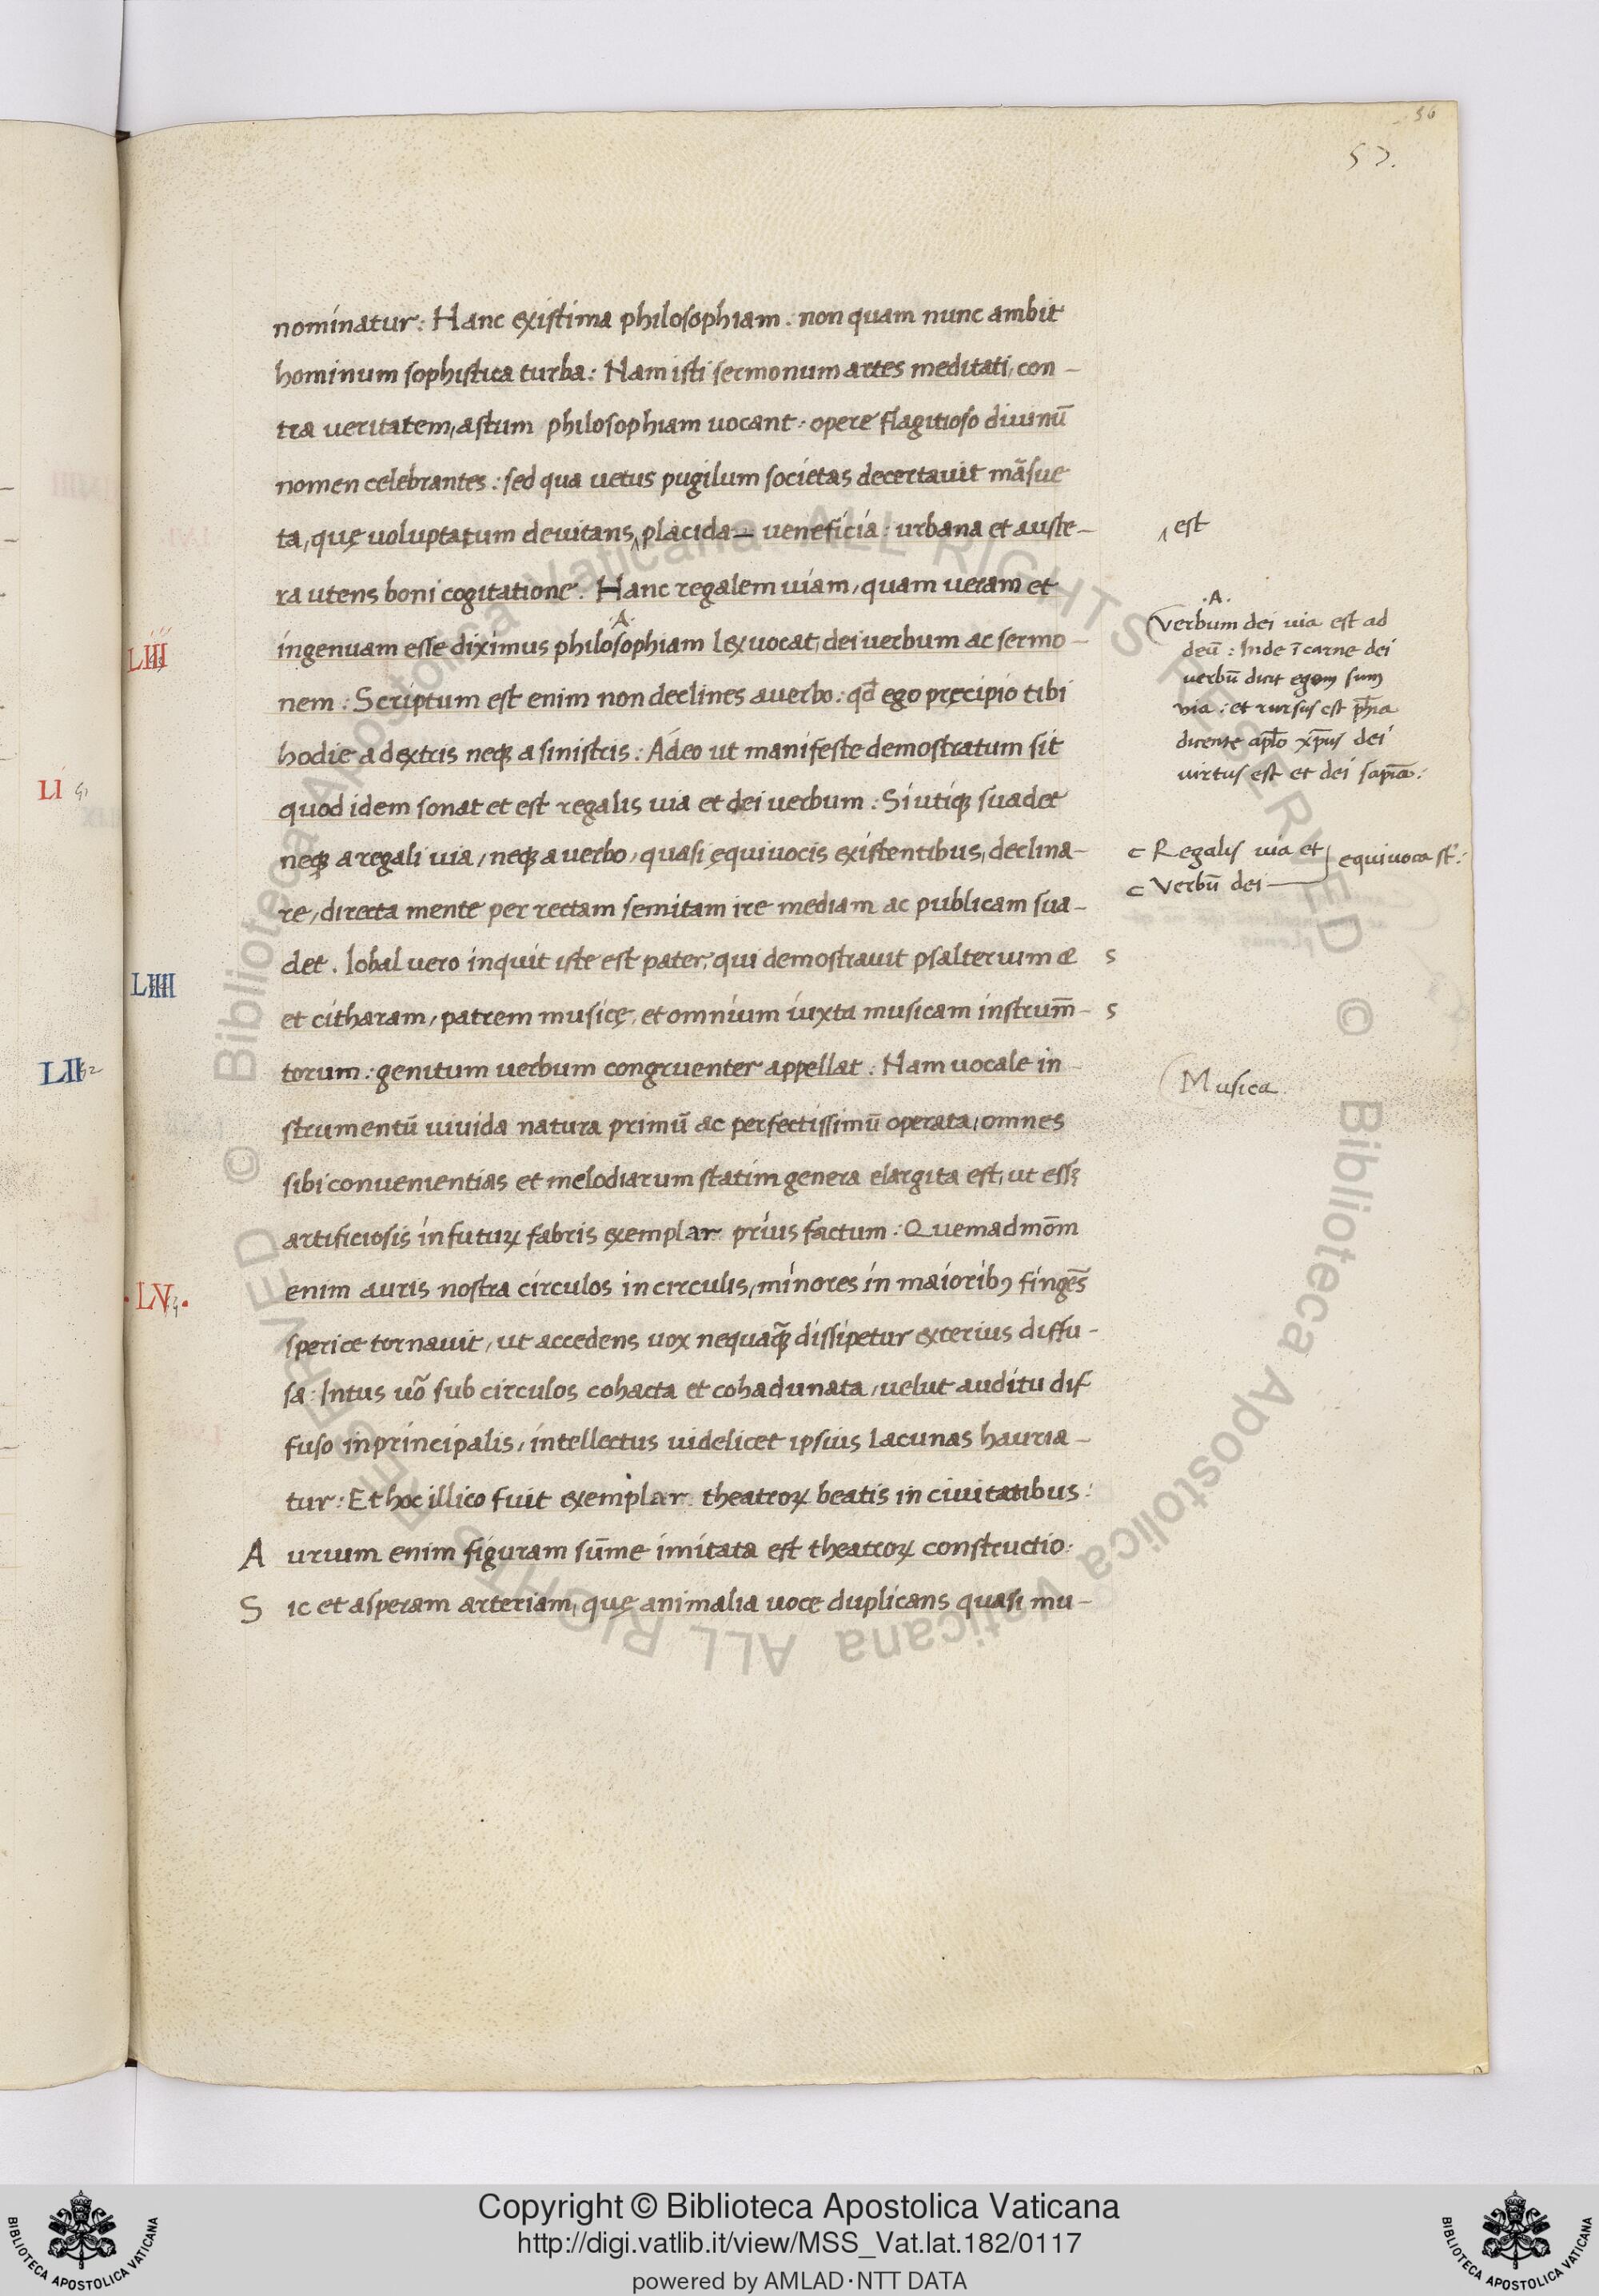 56
57.
nominatur: Hanc existima philosophiam. non quam nunc ambit
hominum sophistica turba: Nam isti sermonum artes meditati, con-
tra veritatem, astum philosophiam uocant: opere flagitioso diuinū
nomen celebrantes: sed qua uetus pugilum societas decertauit māsue
ta, quę uoluptatum deuitans ‸ placida — veneficia: urbana et auste-
‸ est
ra utens boni cogitatione. Hanc regalem uiam, quam ueram et
LIII
ingenuam esse diximus philosophiam lex uocat, dei uerbum ac sermo-
.A.
nem: Scriptum est enim non declines a uerbo: qđ ego pręcipio tibi
hodie a dextris neqȝ a sinistris: Adeo ut manifeste demostratum sit
quod idem sonat et est regalis uia et dei uerbum: Si utiqȝ suadet
neqȝ a regali uia, neqȝ a uerbo, quasi ęquiuocis existentibus, declina-
re, directa mente per rectam semitam ire mediam ac publicam sua-
LIIII
det. Iobal uero inquit iste est pater, qui demostrauit psalterium æ s
et citharam, patrem musicę, et omnium iuxta musicam instrum̄- s
torum: genitum uerbum congruenter appellat: Nam uocale in-
strumentū uiuida natura primū ac perfectissimū operata, omnes
sibi conuenientias et melodiarum statim genera elargita est, ut essȝ
artificiosis in futuꝝ fabris exemplar prius factum: Quemadmōm
LV
enim auris nostra circulos in circulis, minores in maioribꝯ fingēs
sperice tornauit, ut accedens uox nequaq̃ȝ dissipetur exterius diffu-
sa: Intus uō sub circulos cohacta et cohadunata, uelut auditu dif
fuso in principalis, intellectus uidelicet ipsius lacunas hauria-
tur: Et hoc illico fuit exemplar theatroꝝ beatis in ciuitatibus:
A urium enim figuram sūme imitata est theatroꝝ constructio.
S ic et asperam arteriam, quę animalia uoce duplicans quasi mu-
.A.
Verbum dei uia est ad
deū: Inde ī carne dei
uerbū dicit ego sum
uia: et rursus est ph̄ia
dicente apl̄o xp̄us dei
uirtus est et dei sapīa:
c Regalis uia et
c Verbū dei
equiuoca st̄:
Musica
LI 51
LII 52
Copyright © Biblioteca Apostolica Vaticana
http://digi.vatlib.it/view/MSS_Vat.lat.182/0117
powered by AMLAD·NTT DATA
BIBLIOTECA APOSTOLICA VATICANA
BIBLIOTECA APOSTOLICA VATICANA
© Biblioteca Apostolica Vaticana ALL RIGHTS RESERVED
© Biblioteca Apostolica Vaticana ALL RIGHTS RESERVED